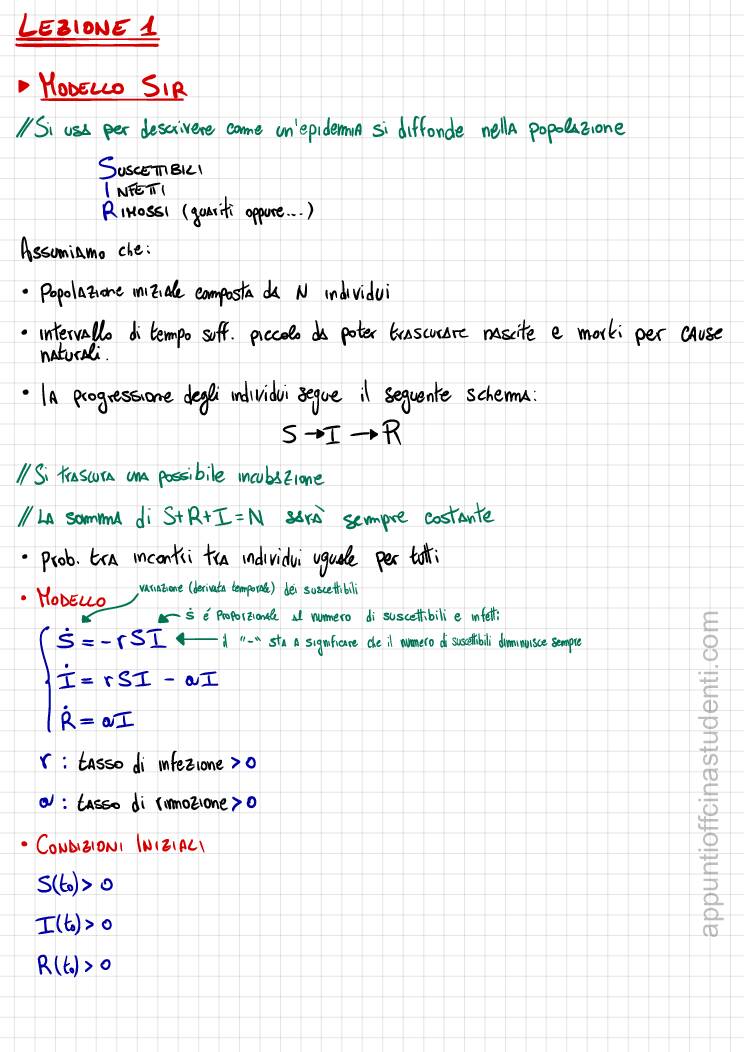 LEZIONE 1
▸ MODELLO SIR
// Si usa per descrivere come un'epidemia si diffonde nella popolazione
SUSCETTIBILI
INFETTI
RIMOSSI (guariti oppure...)
Assumiamo che:
• Popolazione iniziale composta da N individui
• intervallo di tempo suff. piccolo da poter trascurare nascite e morti per cause
naturali.
• la progressione degli individui segue il seguente schema:
S → I → R
// Si trascura una possibile incubazione
// La somma di S+R+I=N sarà sempre costante
• Prob. tra incontri tra individui uguale per tutti
variazione (derivata temporale) dei suscettibili
• MODELLO
ṡ é proporzionale al numero di suscettibili e infetti
Ṡ = -rSI ← il "-" sta a significare che il numero di suscettibili diminuisce sempre
İ = rSI - aI
Ṙ = aI
r : tasso di infezione > 0
a : tasso di rimozione > 0
• CONDIZIONI INIZIALI
S(t₀) > 0
I(t₀) > 0
R(t₀) > 0
appuntioffcinastudenti.com